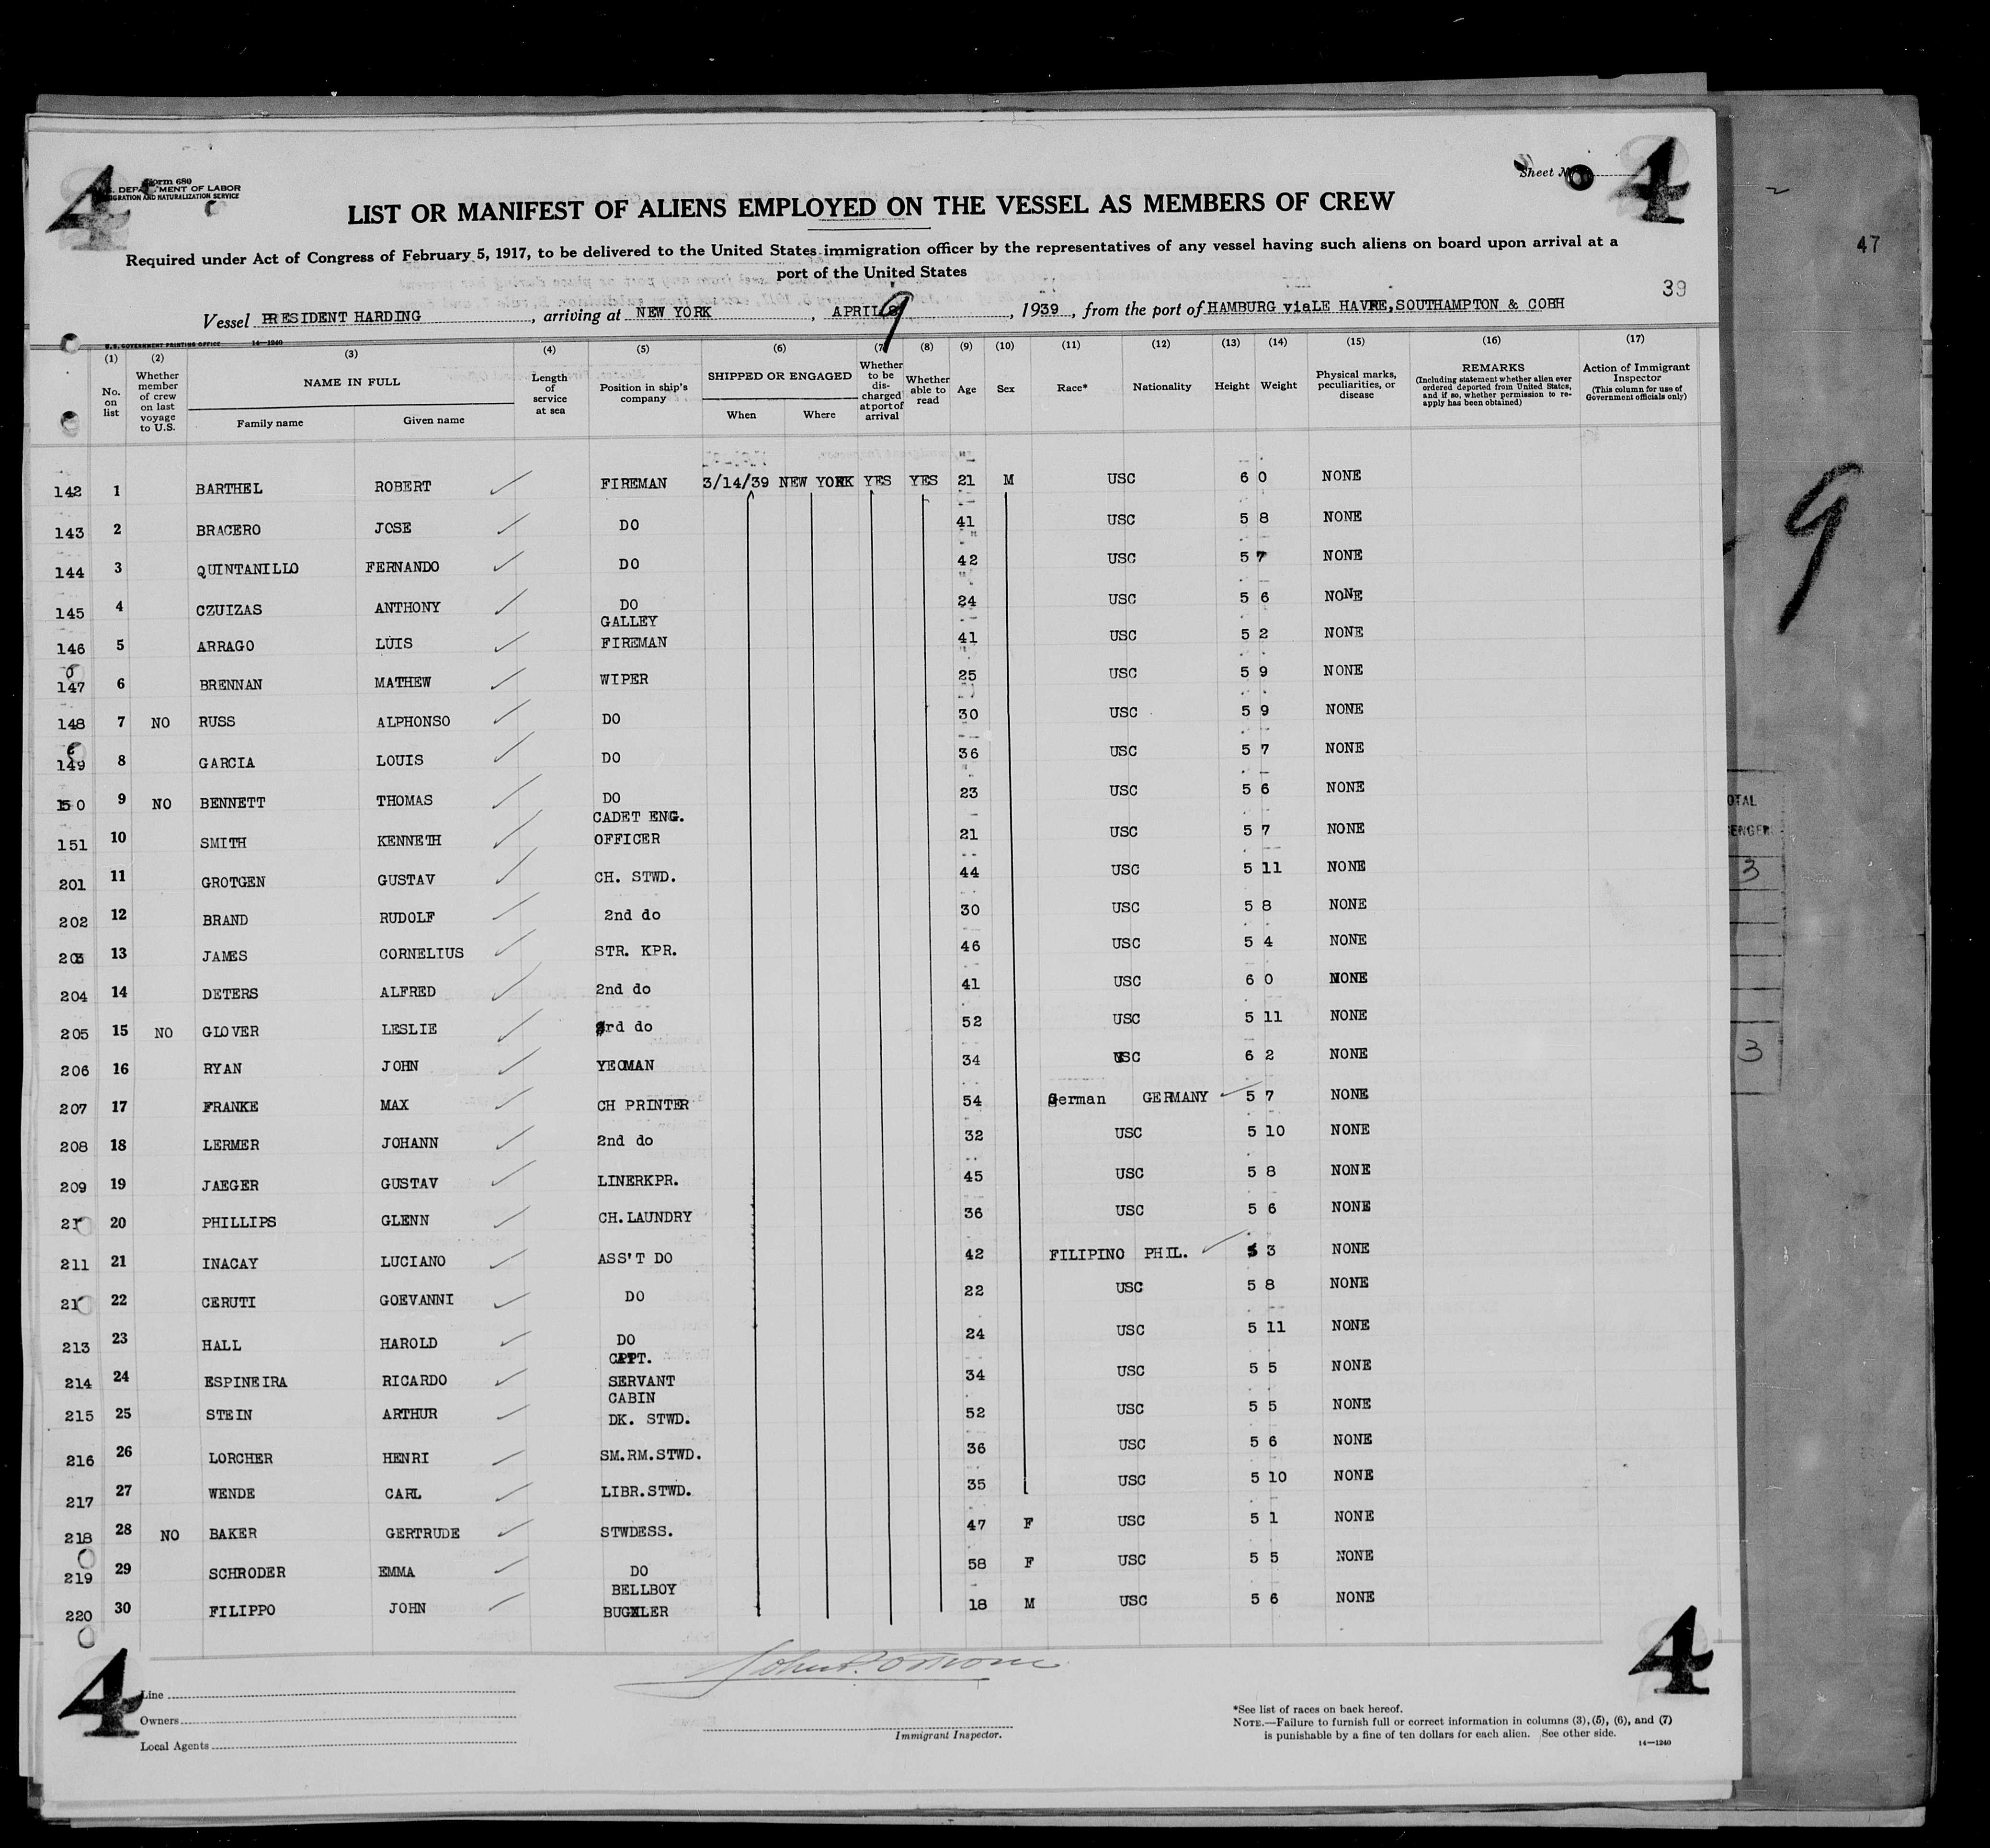 4
Form 680
DEPARTMENT OF LABOR
IMMIGRATION AND NATURALIZATION SERVICE
Sheet No.
4
LIST OR MANIFEST OF ALIENS EMPLOYED ON THE VESSEL AS MEMBERS OF CREW
Required under Act of Congress of February 5, 1917, to be delivered to the United States immigration officer by the representatives of any vessel having such aliens on board upon arrival at a
port of the United States
47
39
Vessel PRESIDENT HARDING, arriving at NEW YORK, APRIL 9, 1939, from the port of HAMBURG viaLE HAVRE,SOUTHAMPTON & COBH
U.S. GOVERNMENT PRINTING OFFICE 14—1240
(1) No. on list
(2) Whether member of crew on last voyage to U.S.
(3) NAME IN FULL Family name Given name
(4) Length of service at sea
(5) Position in ship's company
(6) SHIPPED OR ENGAGED When Where
(7) Whether to be discharged at port of arrival
(8) Whether able to read
(9) Age
(10) Sex
(11) Race*
(12) Nationality
(13) Height
(14) Weight
(15) Physical marks, peculiarities, or disease
(16) REMARKS (Including statement whether alien ever ordered deported from United States, and if so, whether permission to reapply has been obtained)
(17) Action of Immigrant Inspector (This column for use of Government officials only)
142 1 BARTHEL ROBERT FIREMAN 3/14/39 NEW YORK YES YES 21 M USC 6 0 NONE
143 2 BRACERO JOSE DO 41 USC 5 8 NONE
144 3 QUINTANILLO FERNANDO DO 42 USC 5 7 NONE
145 4 CZUIZAS ANTHONY DO 24 USC 5 6 NONE
146 5 ARRAGO LUIS GALLEY FIREMAN 41 USC 5 2 NONE
147 6 BRENNAN MATHEW WIPER 25 USC 5 9 NONE
148 7 NO RUSS ALPHONSO DO 30 USC 5 9 NONE
149 8 GARCIA LOUIS DO 36 USC 5 7 NONE
150 9 NO BENNETT THOMAS DO 23 USC 5 6 NONE
151 10 SMITH KENNETH CADET ENG. OFFICER 21 USC 5 7 NONE
201 11 GROTGEN GUSTAV CH. STWD. 44 USC 5 11 NONE
202 12 BRAND RUDOLF 2nd do 30 USC 5 8 NONE
203 13 JAMES CORNELIUS STR. KPR. 46 USC 5 4 NONE
204 14 DETERS ALFRED 2nd do 41 USC 6 0 NONE
205 15 NO GLOVER LESLIE 3rd do 52 USC 5 11 NONE
206 16 RYAN JOHN YEOMAN 34 USC 6 2 NONE
207 17 FRANKE MAX CH PRINTER 54 German GERMANY 5 7 NONE
208 18 LERMER JOHANN 2nd do 32 USC 5 10 NONE
209 19 JAEGER GUSTAV LINERKPR. 45 USC 5 8 NONE
21 20 PHILLIPS GLENN CH.LAUNDRY 36 USC 5 6 NONE
211 21 INACAY LUCIANO ASS'T DO 42 FILIPINO PHIL. 5 3 NONE
21 22 CERUTI GOEVANNI DO 22 USC 5 8 NONE
213 23 HALL HAROLD DO 24 USC 5 11 NONE
214 24 ESPINEIRA RICARDO CAPT. SERVANT 34 USC 5 5 NONE
215 25 STEIN ARTHUR CABIN DK. STWD. 52 USC 5 5 NONE
216 26 LORCHER HENRI SM.RM.STWD. 36 USC 5 6 NONE
217 27 WENDE CARL LIBR.STWD. 35 USC 5 10 NONE
218 28 NO BAKER GERTRUDE STWDESS. 47 F USC 5 1 NONE
219 29 SCHRODER EMMA DO 58 F USC 5 5 NONE
220 30 FILIPPO JOHN BELLBOY BUGLER 18 M USC 5 6 NONE
9
3
3
4
Line
Owners
Local Agents
Immigrant Inspector.
*See list of races on back hereof.
NOTE.—Failure to furnish full or correct information in columns (3), (5), (6), and (7)
is punishable by a fine of ten dollars for each alien. See other side.
14—1240
4